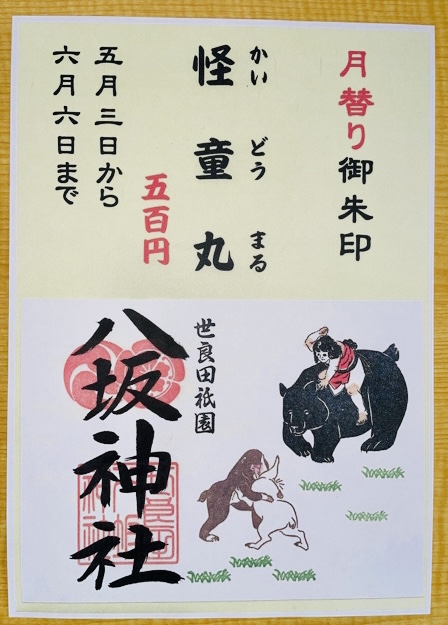 月替り御朱印
かい どう まる
怪童丸
五百円
五月三日から
六月六日まで
世良田祇園
八坂神社